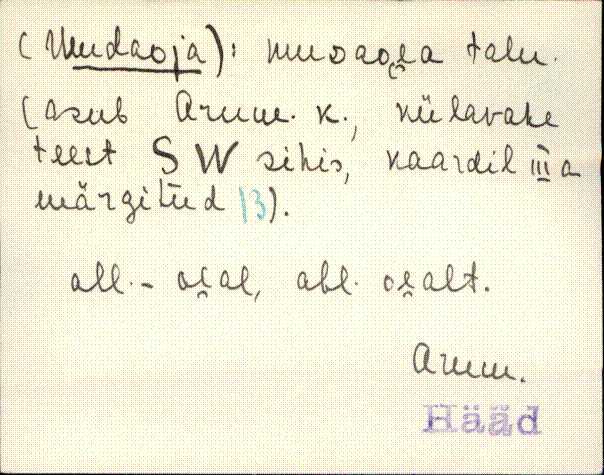 (Mudaoja): musaoi̯a talu.
(asub Arum. k., külavahe
teest SW sihis, kaardil III a
märgitud 13).
all. - oi̯al, abl. oi̯alt.
Arum.
Hääd